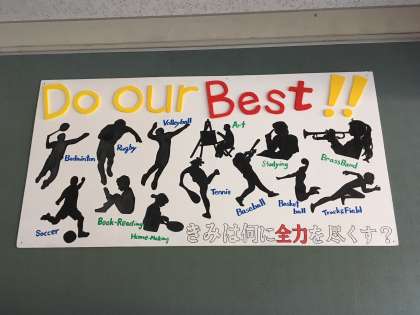 Do our Best!!
Badminton
Rugby
Volleyball
Art
Studying
Brass Band
Soccer
Book-Reading
Home-Making
Tennis
Baseball
Basket
ball
Track&Field
きみは何に全力を尽くす？